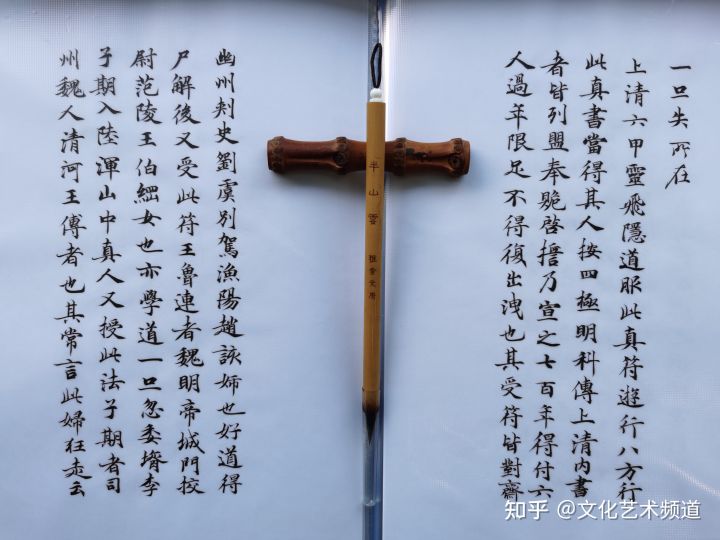 一旦失所在
上清六甲靈飛隱道服此真符遊行八方行
此真書當得其人按四極明科傳上清內書
者皆列盟奉貺啓誓乃宣之七百年得付六
人過年限足不得復出洩也其受符皆對齋
半山雲
文房
幽州刾史劉虞別駕漁陽趙該婦也好道得
尸解後又受此符王魯連者魏明帝城門挍
尉范陵王伯綱女也亦學道一旦忽委壻李
子期入陸渾山中真人又授此法子期者司
州魏人清河王傳者也其常言此婦狂走云
知乎 @文化艺术频道